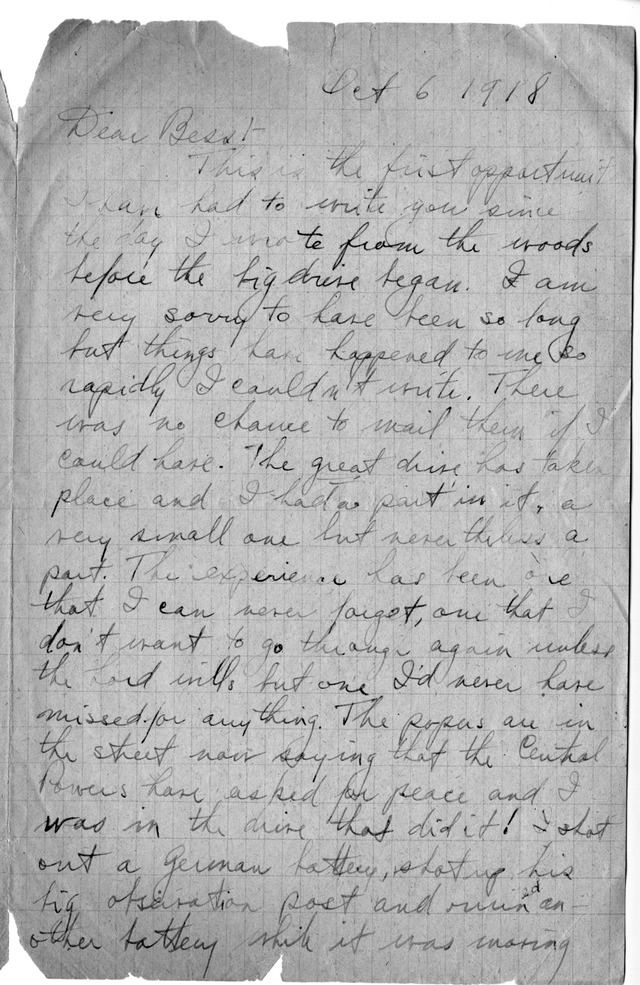 Oct 6 1918
Dear Bess:-
This is the first opportunit
I have had to write you since
the day I wrote from the woods
before the big drive began. I am
very sorry to have been so long
but things have happened to me so
rapidly I couldn't write. There
was no chance to mail them if I
could have. The great drive has taken
place and I had a part in it, a
very small one but nevertheless a
part. The experience has been one
that I can never forget, one that I
don't want to go through again unless
the Lord wills but one I'd never have
missed for anything. The papers are in
the street now saying that the Central
Powers have asked for peace and I
was in the drive that did it! I shot
out a German battery, shot up his
big observation post and ruined an-
other battery while it was moving